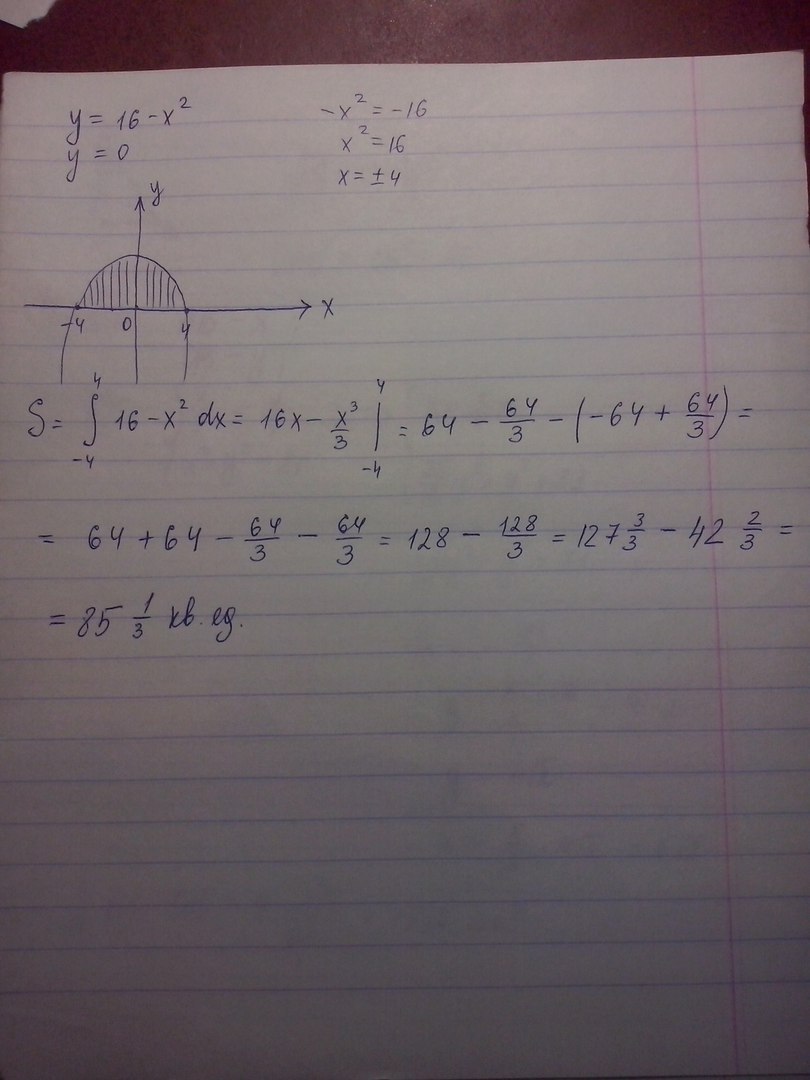 y = 16 - x²
y = 0
-x² = -16
x² = 16
x = ±4
y
x
-4 0 4
S = ∫₋₄⁴ 16 - x² dx = 16x - x³/3 |₋₄⁴ = 64 - 64/3 - (-64 + 64/3) =
= 64 + 64 - 64/3 - 64/3 = 128 - 128/3 = 127 3/3 - 42 2/3 =
= 85 1/3 кв. ед.